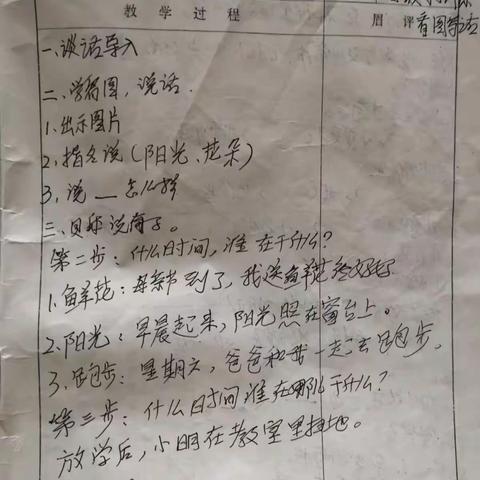 教学过程
眉评
看图写话
一、谈话导入
二、学看图,说话.
1、出示图片
2、指名说(阳光、花朵)
3、说 __ 怎么样
三、贝乐说句子。
第二步:什么时间,谁在干什么?
1、鲜花:母亲节到了,我送鲜花给妈妈
2、阳光:早晨起来,阳光照在窗台上。
3、跑步:星期六,爸爸和我一起去跑步。
第三步:什么时间谁在哪儿干什么?
放学后,小明在教室里扫地。